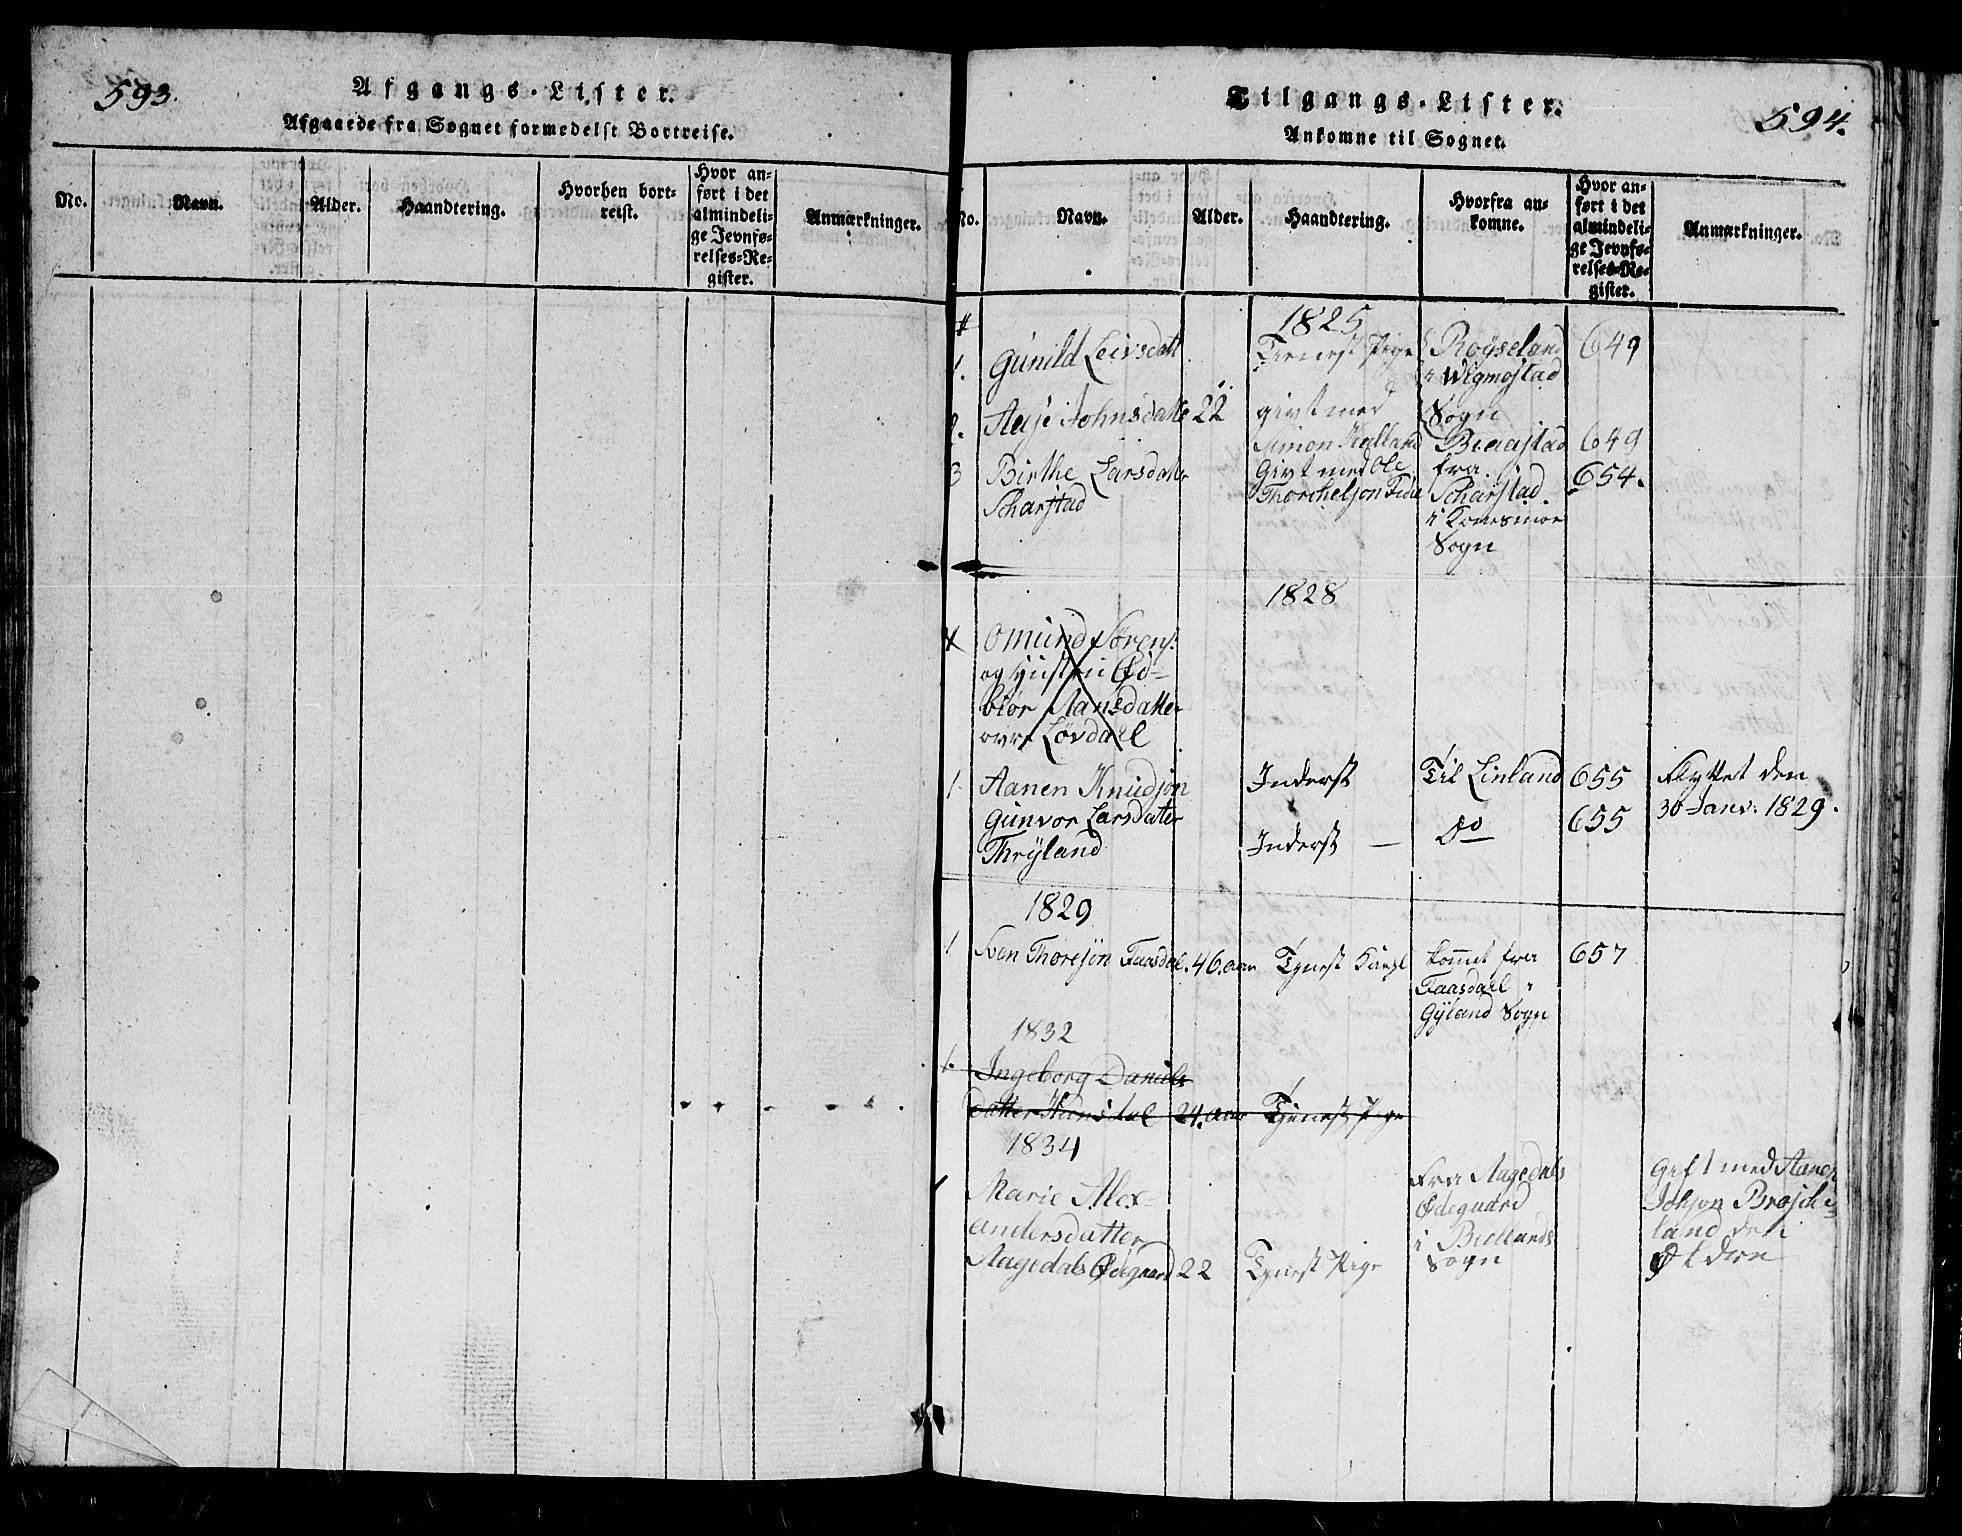 593.
Afgangs-Lister.
Afgaaede fra Sognet formedelst Bortreise.
No.
Navn.
Alder.
Haandtering.
Hvorhen bort-
reist.
Hvor an-
ført i det
almindeli-
ge Jevnfø-
relses-Re-
gister.
Anmærkninger.
594.
Tilgangs-Lister.
Ankomne til Sognet.
No.
Navn.
Alder.
Haandtering.
Hvorfra an-
komne.
Hvor an-
ført i det
almindeli-
ge Jevnfø-
relses-Re-
gister.
Anmærkninger.
1825
1. Gunild Leivsdatt Tienest Pige Røyseland 649
i Wigmostad
Sogn
2. Aase Johnsdatte 22 givt med
Simon Haaland Braastad 649
3 Birthe Larsdatter Givt med Ole fra 654.
Scharstad Thorchelson Scharstad.
i
Sogn
1828
Omund Sørens.
og Hustru Ød-
biør Aanesdatter
Løvdael
1. Aanen Knudson Inderst Til Linland 655 Flyttet den
30 Janv: 1829.
Gunvor Larsdatter Inderst — Do 655
Thryland
1829
1 Sven Thoresøn Faasdal. 46. aar Tjenest Karl kommet fra 657
Faasdael i
Gyland Sogn
1832
1. Ingeborg Daniels
datter 24. aar Tjenest Pige
1834
Marie Alex-
andersdatter
Aagedals Ødegaard 22 Tjenest Pige
Fra Aagedals
Ødegaard
i Biellands
Sogn
Gift med Aanen
land den
Ældre